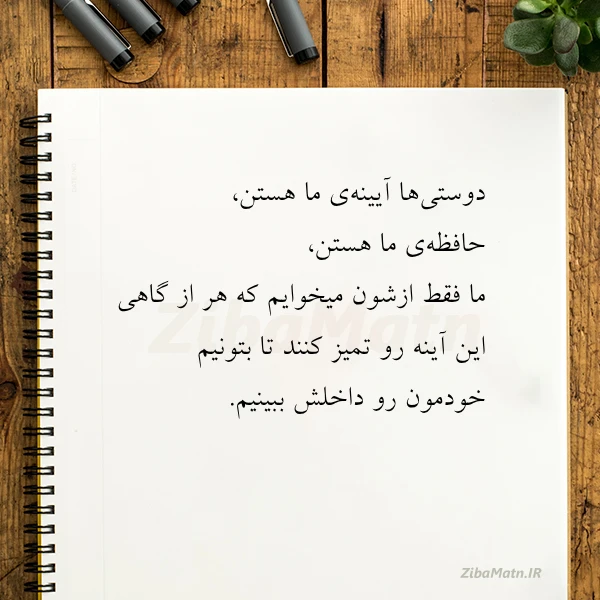 دوستی‌ها آیینه‌ی ما هستن،
حافظه‌ی ما هستن،
ما فقط ازشون میخوایم که هر از گاهی
این آینه رو تمیز کنند تا بتونیم
خودمون رو داخلش ببینیم.
ZibaMatn
ZibaMatn.IR